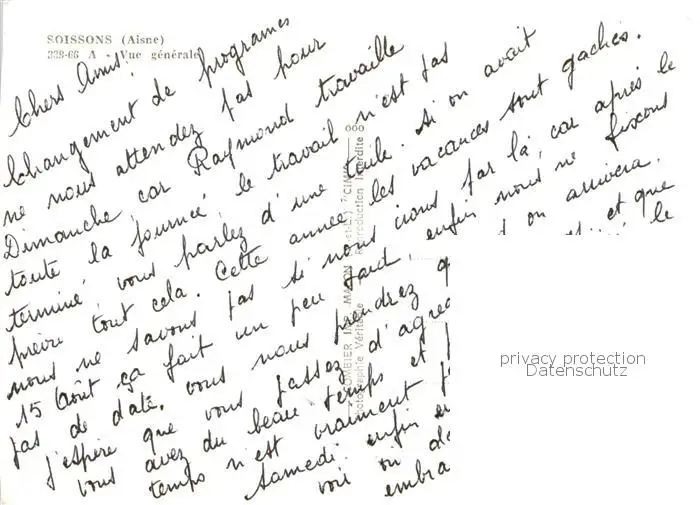 SOISSONS (Aisne)
339-66 A - Vue générale
Chers Amis.
Changement de programes
ne nous attendez pas pour
Dimanche car Raymond travaille
toute la journée, le travail n'est pas
terminé, vous parlez d'une tuile. Si on avait
prévu tout cela. Cette année les vacances sont gachés.
nous ne savons pas si nous irons par là, car après le
15 Août ça fait un peu tard, enfin nous ne fixons
pas de date, vous nous prendrez q on arrivera.
J'espère que vous passez d'agréa et que
vous avez du beau temps et p le
temps n'est vraiment p
Samedi. enfin e
voir où de
embra
COMBIER IMP. MACON "CIM"
Photographie Véritable Reproduction Interdite
privacy protection
Datenschutz